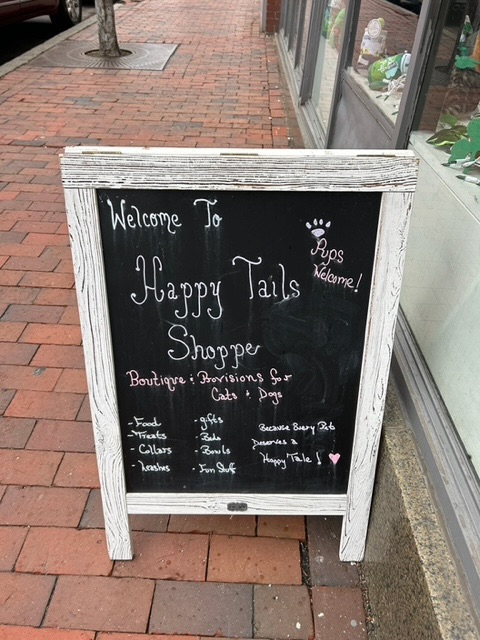 Welcome To
Pups
Welcome!
Happy Tails
Shoppe
Boutique & Provisions for
Cats & Dogs
- Food
- Treats
- Collars
- Leashes
- gifts
- Beds
- Bowls
- Fun Stuff
Because Every Pet
Deserves a
Happy Tale!